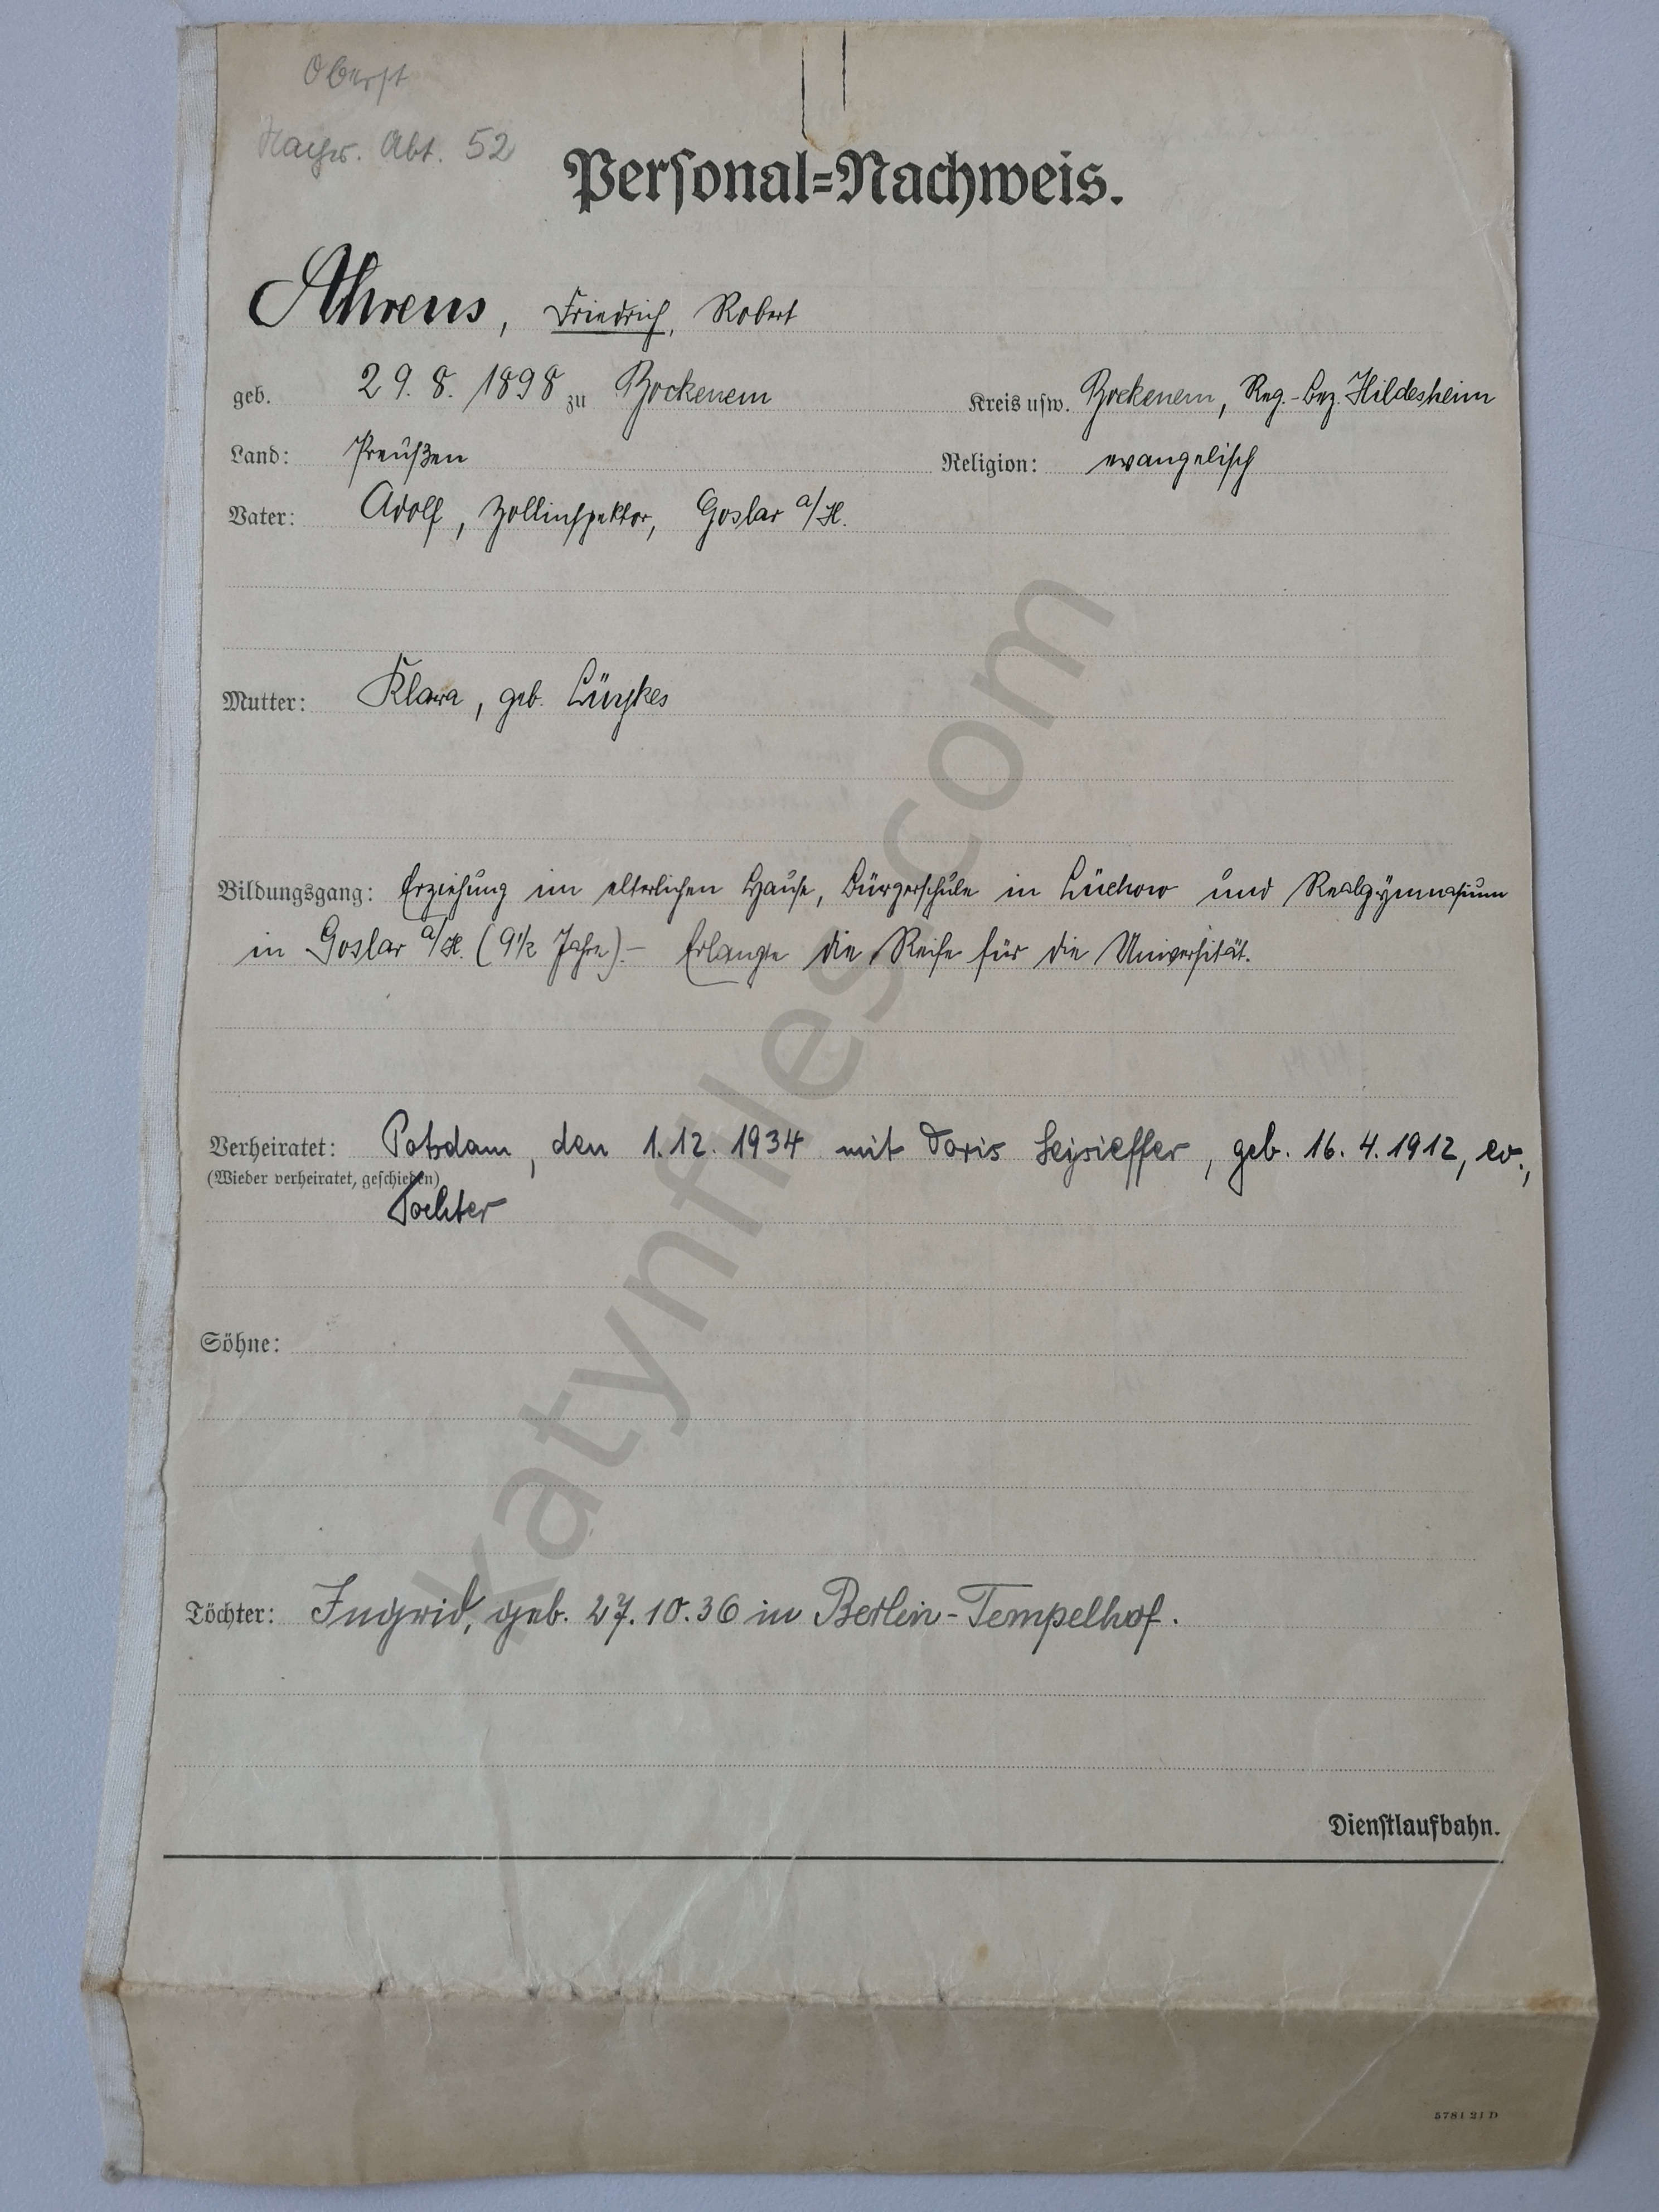 Oberst
Nachr. Abt. 52
Personal=Nachweis.
Ahrens, Friedrich, Robert
geb. 29.8.1898 zu Bockenem Kreis usw. Bockenem, Reg.-Bez. Hildesheim
Land: Preußen Religion: evangelisch
Vater: Adolf, Zollinspektor, Goslar a/H.
Mutter: Klara, geb.
Bildungsgang: Erziehung im elterlichen Hause, Bürgerschule in Lüchow und Realgymnasium
in Goslar a/H. (9½ Jahre).- Erlangte die Reife für die Universität.
Verheiratet: Potsdam, den 1.12.1934 mit Doris Seysieffer, geb. 16.4.1912, ev.,
(Wieder verheiratet, geschieden)
Tochter
Söhne:
Töchter: Ingrid, geb. 27.10.36 in Berlin-Tempelhof.
Dienstlaufbahn.
5781 21 D
katynfiles.com